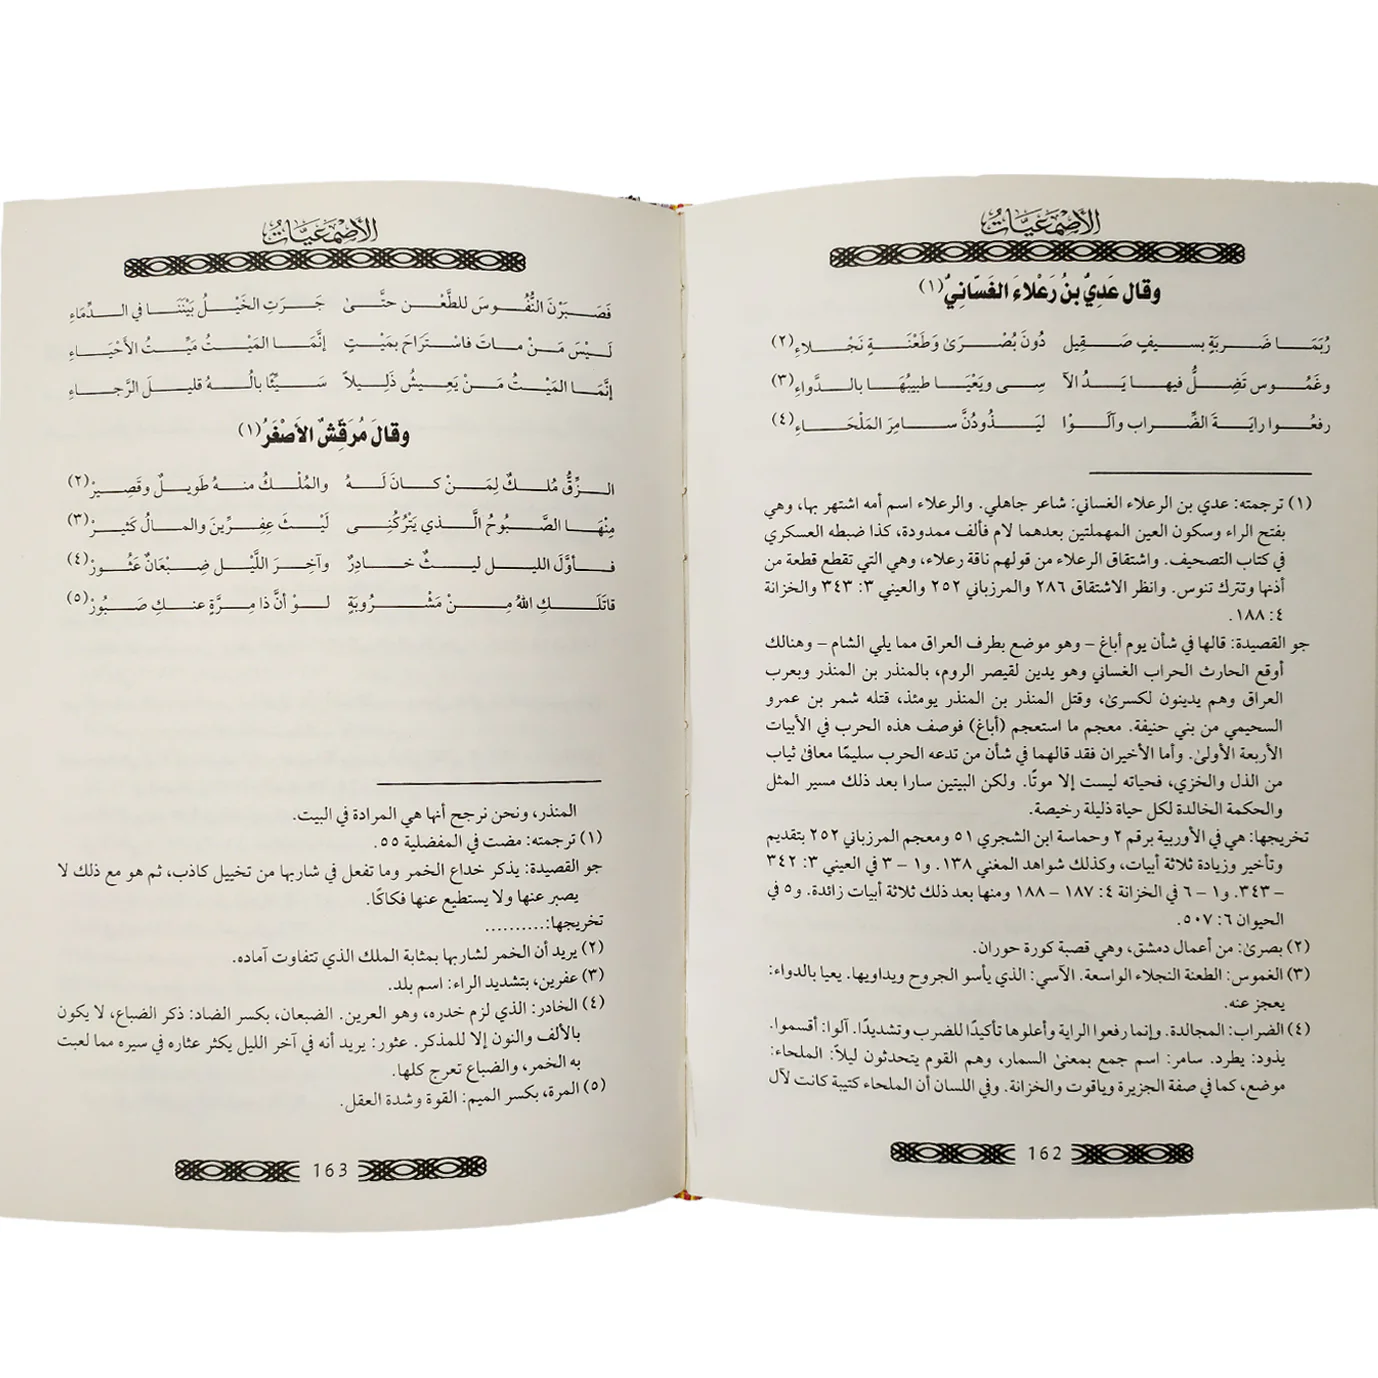 الأصمعيات
وقال عَدِيُّ بنُ رَعْلاءَ الغَسّانيُّ(١)
رُبَمَا ضَرْبَةٍ بسيفٍ صَقِيل دُونَ بُصْرَىٰ وَطَعْنَةٍ نَجْلاءِ(٢)
وغَمُوس تَضِلُّ فيها يَدُ الآ سِى ويَعْيَا طبيبُهَا بالدَّواءِ(٣)
رفعُوا رايَةَ الضِّراب وآلَوْا لَيَذُودُنَّ سامِرَ المَلْحَاءِ(٤)
(١) ترجمته: عدي بن الرعلاء الغساني: شاعر جاهلي. والرعلاء اسم أمه اشتهر بها، وهي
بفتح الراء وسكون العين المهملتين بعدهما لام فألف ممدودة، كذا ضبطه العسكري
في كتاب التصحيف. واشتقاق الرعلاء من قولهم ناقة رعلاء، وهي التي تقطع قطعة من
أذنها وتترك تنوس. وانظر الاشتقاق ٢٨٦ والمرزباني ٢٥٢ والعيني ٣: ٣٤٣ والخزانة
٤: ١٨٨.
جو القصيدة: قالها في شأن يوم أباغ – وهو موضع بطرف العراق مما يلي الشام – وهنالك
أوقع الحارث الحراب الغساني وهو يدين لقيصر الروم، بالمنذر بن المنذر وبعرب
العراق وهم يدينون لكسرىٰ، وقتل المنذر بن المنذر يومئذ، قتله شمر بن عمرو
السحيمي من بني حنيفة. معجم ما استعجم (أباغ) فوصف هذه الحرب في الأبيات
الأربعة الأولىٰ. وأما الأخيران فقد قالهما في شأن من تدعه الحرب سليمًا معافىٰ ثياب
من الذل والخزي، فحياته ليست إلا موتًا. ولكن البيتين سارا بعد ذلك مسير المثل
والحكمة الخالدة لكل حياة ذليلة رخيصة.
تخريجها: هي في الأوربية برقم ٢ وحماسة ابن الشجري ٥١ ومعجم المرزباني ٢٥٢ بتقديم
وتأخير وزيادة ثلاثة أبيات، وكذلك شواهد المغني ١٣٨. و١ – ٣ في العيني ٣: ٣٤٢
– ٣٤٣. و١ – ٦ في الخزانة ٤: ١٨٧ – ١٨٨ ومنها بعد ذلك ثلاثة أبيات زائدة. و٥ في
الحيوان ٦: ٥٠٧.
(٢) بصرىٰ: من أعمال دمشق، وهي قصبة كورة حوران.
(٣) الغموس: الطعنة النجلاء الواسعة. الآسي: الذي يأسو الجروح ويداويها. يعيا بالدواء:
يعجز عنه.
(٤) الضراب: المجالدة. وإنما رفعوا الراية وأعلوها تأكيدًا للضرب وتشديدًا. آلوا: أقسموا.
يذود: يطرد. سامر: اسم جمع بمعنىٰ السمار، وهم القوم يتحدثون ليلاً: الملحاء:
موضع، كما في صفة الجزيرة وياقوت والخزانة. وفي اللسان أن الملحاء كتيبة كانت لآل
162
الأصمعيات
فَصَبَرْنَ النُّفُوسَ للطَّعْن حتَّىٰ جَرَتِ الخَيْلُ بَيْنَنَا في الدِّمَاءِ
لَيْسَ مَنْ ماتَ فاسْتَرَاحَ بمَيْتٍ إنَّمَا المَيْتُ مَيِّتُ الأحْيَاءِ
إنَّمَا المَيْتُ مَنْ يَعِيشُ ذَلِيلاً سَيِّئًا بالُهُ قليلَ الرَّجاءِ
وقالَ مُرَقِّشٌ الأصْغَرُ(١)
الزِّقُّ مُلكٌ لِمَنْ كانَ لَهُ والمُلْكُ منهُ طَويلٌ وقَصِيرْ(٢)
مِنْهَا الصَّبُوحُ الَّذي يَتْرُكُنِى لَيْثَ عِفِرِّينَ والمالُ كَثيرْ(٣)
فأوَّلَ الليل ليثٌ خادِرٌ وآخِرَ اللَّيْل ضِبْعَانٌ عَثُورْ(٤)
قاتَلَكِ اللهُ مِنْ مَشْرُوبَةٍ لوْ أنَّ ذا مِرَّةٍ عنكِ صَبُورْ(٥)
المنذر، ونحن نرجح أنها هي المرادة في البيت.
(١) ترجمته: مضت في المفضلية ٥٥.
جو القصيدة: يذكر خداع الخمر وما تفعل في شاربها من تخييل كاذب، ثم هو مع ذلك لا
يصبر عنها ولا يستطيع عنها فكاكًا.
تخريجها:..........
(٢) يريد أن الخمر لشاربها بمثابة الملك الذي تتفاوت آماده.
(٣) عفرين، بتشديد الراء: اسم بلد.
(٤) الخادر: الذي لزم خدره، وهو العرين. الضبعان، بكسر الضاد: ذكر الضباع، لا يكون
بالألف والنون إلا للمذكر. عثور: يريد أنه في آخر الليل يكثر عثاره في سيره مما لعبت
به الخمر، والضباع تعرج كلها.
(٥) المرة، بكسر الميم: القوة وشدة العقل.
163